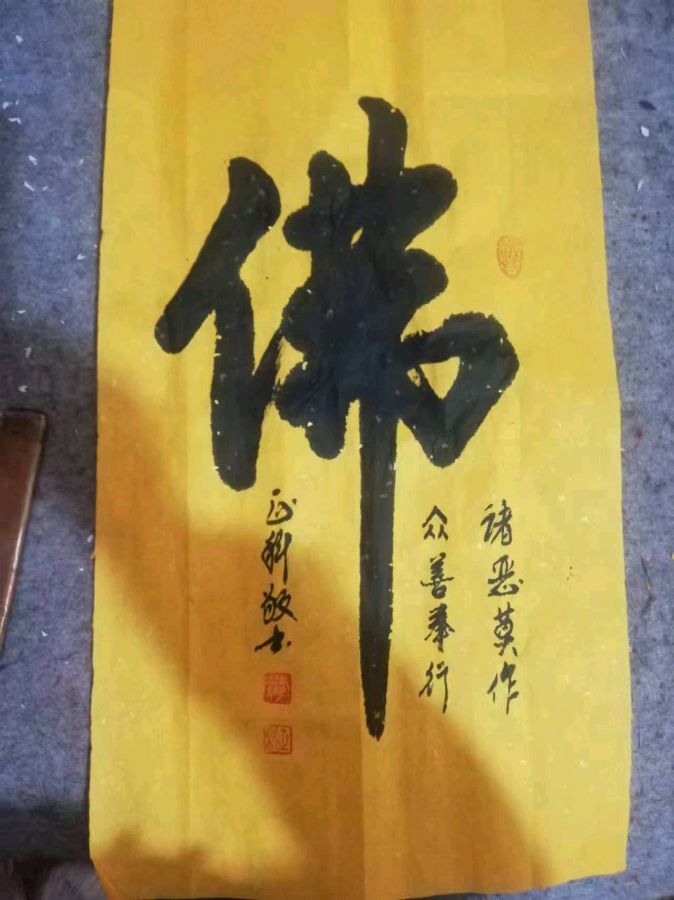 佛
诸恶莫作
众善奉行
正科敬书